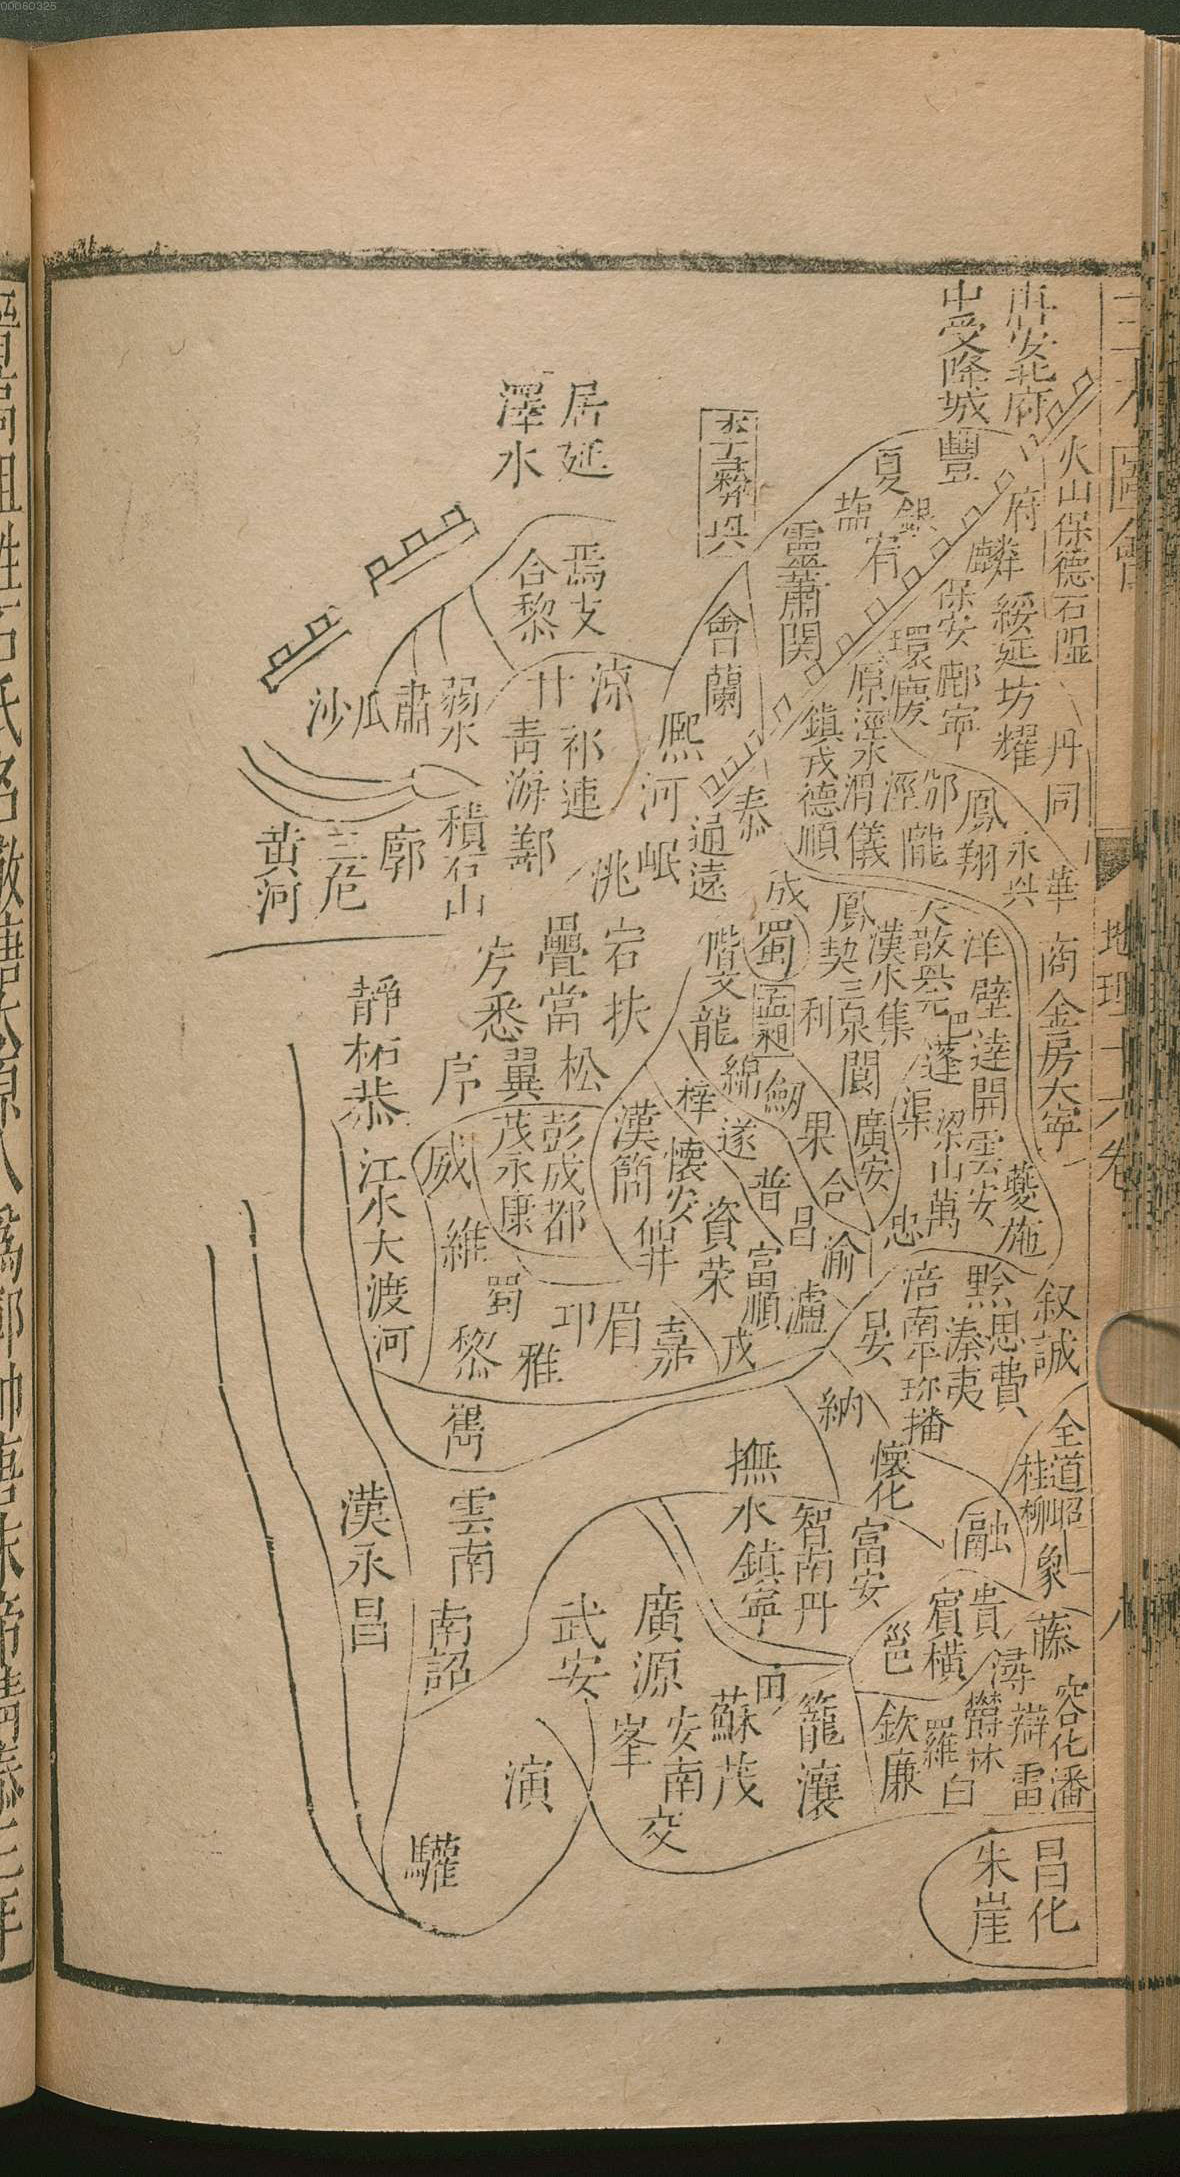 00060325
圖會
地理十六卷
唐安北府
中受降城
豐
火山保德石隰
府
麟
綏延坊耀
丹同
夏
銀
鹽
宥
保安
鄜寧
環慶
原涇水
靈蕭関
李彝興
會蘭
居延
澤水
焉支
合黎
涼
甘
祁連
青
鄯
弱水
肅
瓜
沙
熙河
岷
洮
通遠
秦
鎮戎德順
渭儀
涇
邠
隴
鳳翔
永興
華
商金房大寧
積石山
廓
黄河
宕
扶
疊當
松
翼
悉
靜柘恭
成
蜀
孟昶
階文龍
鳳
三泉
利
漢水集
大散
洋壁
逹開雲安
巴
蓬
渠
梁山萬
閬
廣安
夔施
綿
劒
梓
遂
果
合
普
昌
渝
忠
漢簡
懷安
仙井
資榮
富順
瀘
彭成都
茂永康
威
維
蜀
黎
雅
邛
眉
嘉
戎
江水大渡河
晏
涪南平
珍播
黔
思費
溱夷
叙誠
納
巂
雲南
南詔
漢永昌
撫水鎮寧
智南丹
懷化
富安
融
全道
桂
昭
柳
象
武安
廣源
峯
安南
交
蘇茂
田
籠瀼
邕
賓橫
貴
潯
藤
容化潘
欽廉
羅
白
雷
演
驩
朱崖
昌化